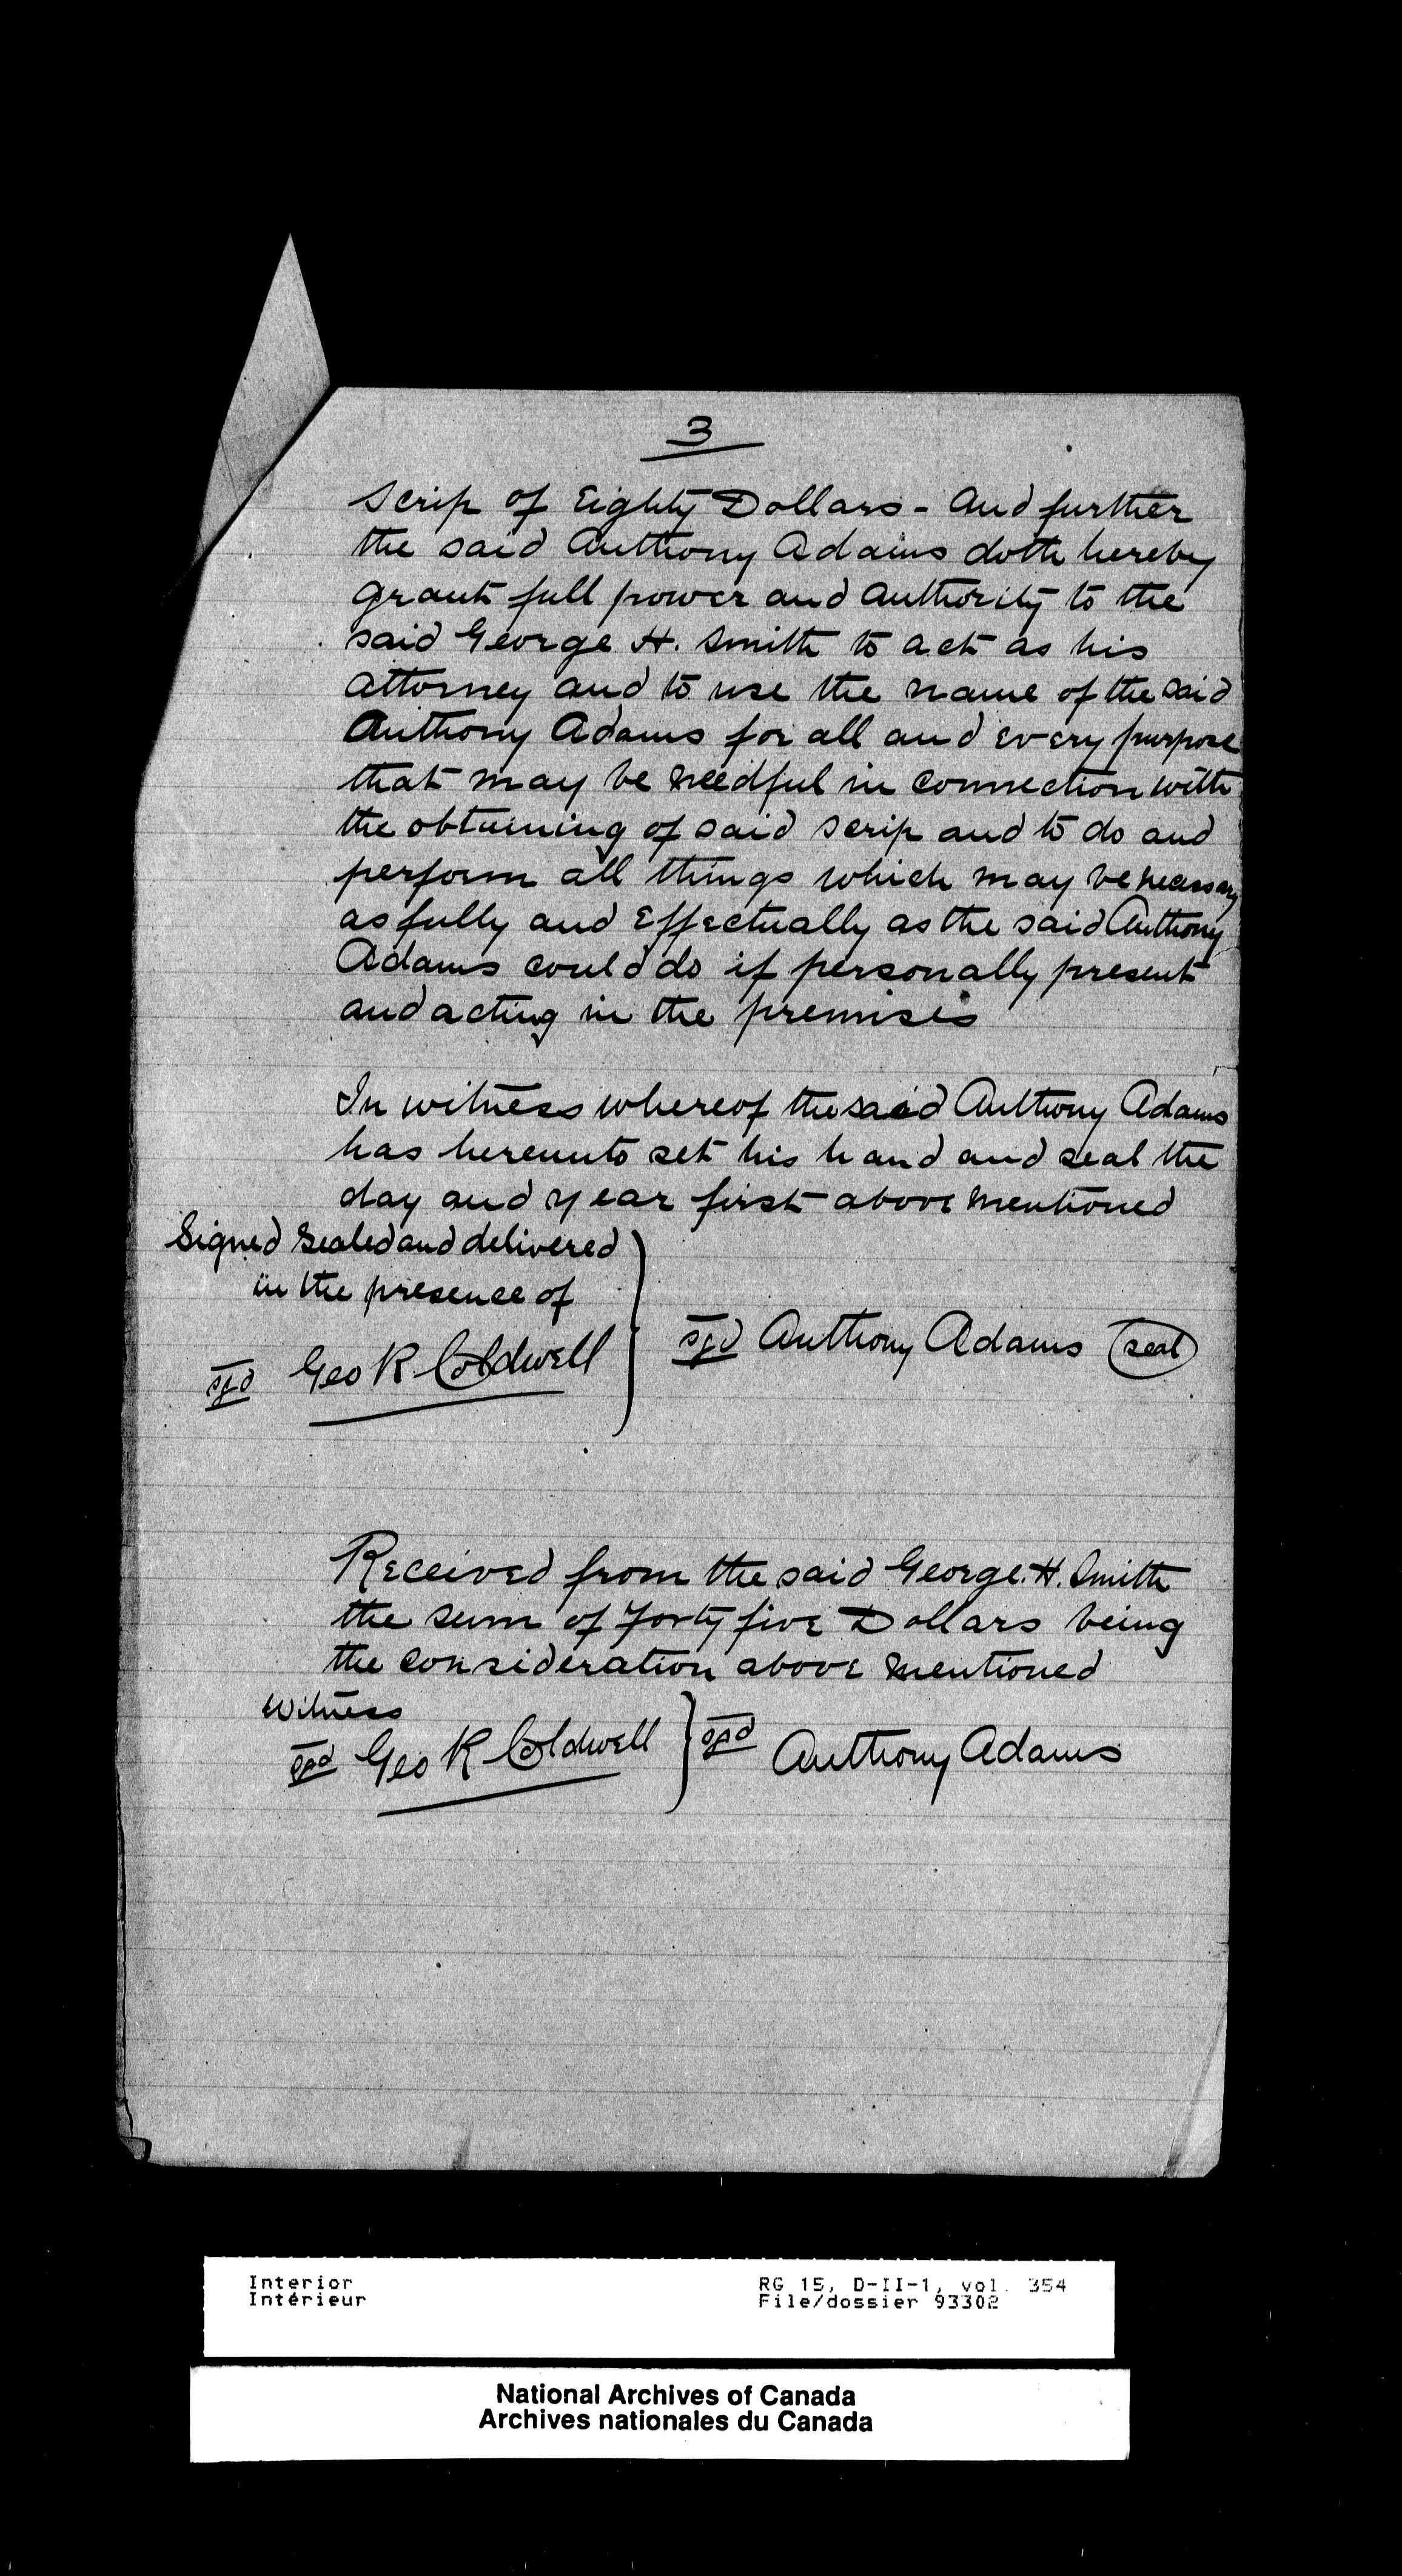 3
scrip of Eighty Dollars - And further
the said Anthony Adams doth hereby
grant full power and authority to the
said George H. Smith to act as his
attorney and to use the name of the said
Anthony Adams for all and every purpose
that may be needful in connection with
the obtaining of said scrip and to do and
perform all things which may be necessary
as fully and effectually as the said Anthony
Adams could do if personally present
and acting in the premises
In witness whereof the said Anthony Adams
has hereunto set his hand and seal the
day and year first above mentioned
Signed Sealed and delivered
in the presence of
sgd Geo R Coldwell
sgd Anthony Adams seal
Received from the said George. H. Smith
the sum of Forty five Dollars being
the consideration above mentioned
Witness
sgd Geo R Coldwell
sgd Anthony Adams
Interior RG 15, D-II-1, vol. 354
Intérieur File/dossier 93302
National Archives of Canada
Archives nationales du Canada